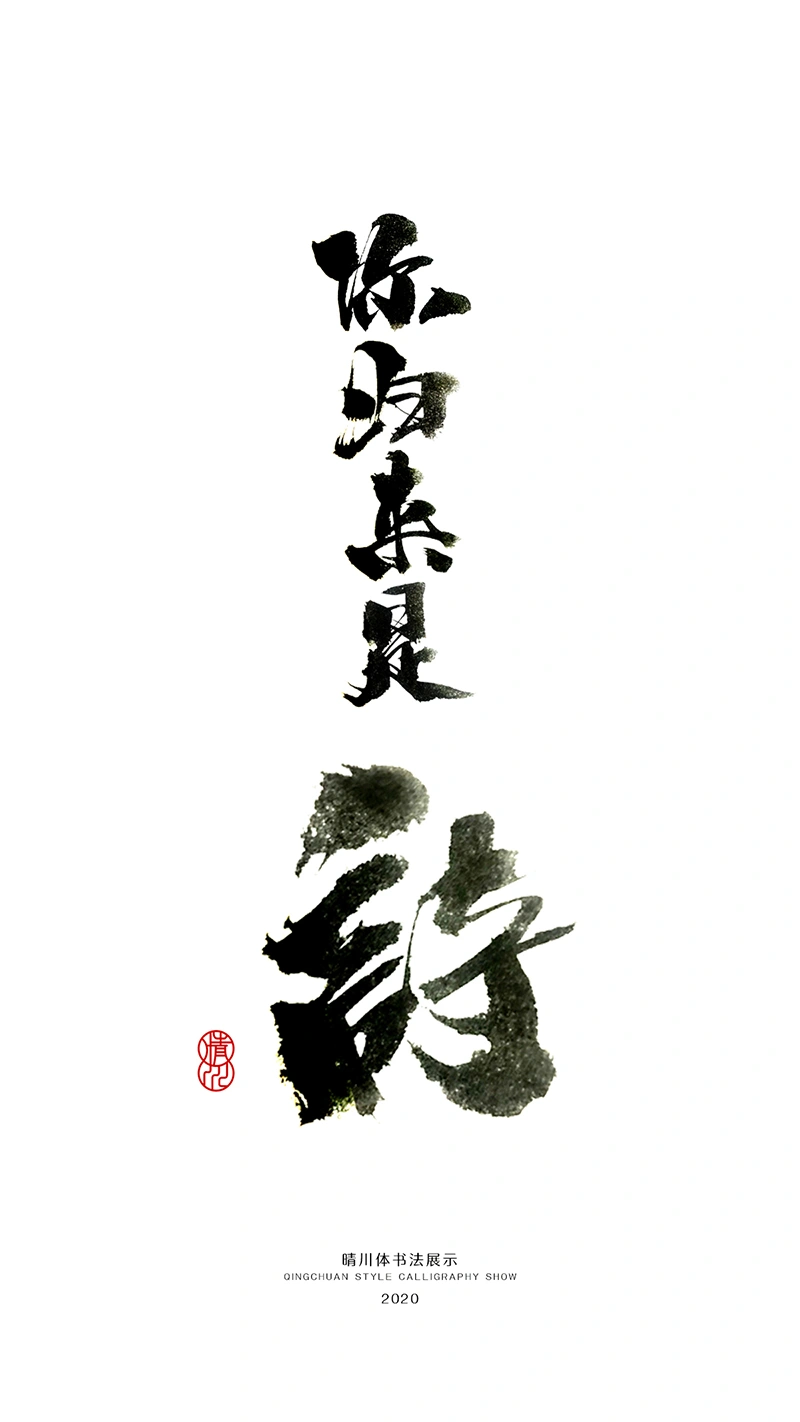 你归来是
詩
晴川
晴川体书法展示
QINGCHUAN STYLE CALLIGRAPHY SHOW
2020